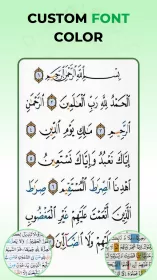 CUSTOM FONT
COLOR
بِسْمِ اللَّهِ الرَّحْمَٰنِ الرَّحِيمِ
الْحَمْدُ لِلَّهِ رَبِّ الْعَالَمِينَ الرَّحْمَٰنِ
الرَّحِيمِ مَالِكِ يَوْمِ الدِّينِ
إِيَّاكَ نَعْبُدُ وَإِيَّاكَ نَسْتَعِينُ
اهْدِنَا الصِّرَاطَ الْمُسْتَقِيمَ صِرَاطَ
الَّذِينَ أَنْعَمْتَ عَلَيْهِمْ غَيْرِ الْمَغْضُوبِ
عَلَيْهِمْ وَلَا الضَّالِّينَ